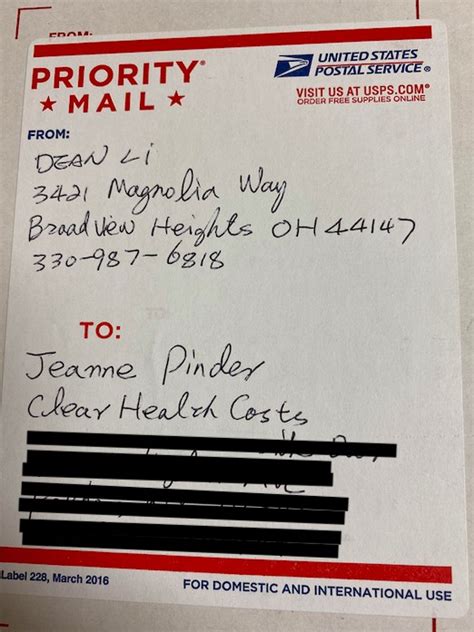 FROM:
UNITED STATES
POSTAL SERVICE®
PRIORITY®
★ MAIL ★
VISIT US AT USPS.COM®
ORDER FREE SUPPLIES ONLINE
FROM:
DEAN Li
3421 Magnolia Way
Broadview Heights OH 44147
330-987-6818
TO:
Jeanne Pinder
Clear Health Costs
Label 228, March 2016
FOR DOMESTIC AND INTERNATIONAL USE